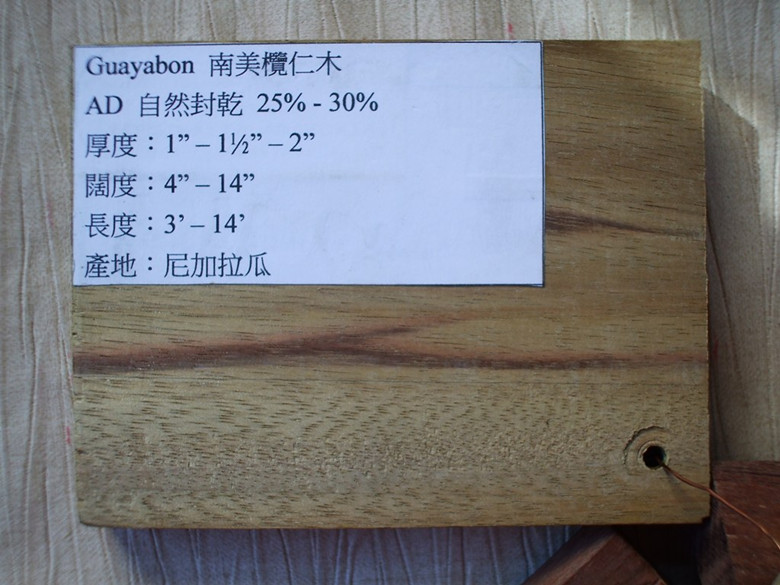 Guayabon 南美欖仁木
AD 自然封乾 25% - 30%
厚度：1” – 1½” – 2”
闊度：4” – 14”
長度：3’ – 14’
產地：尼加拉瓜